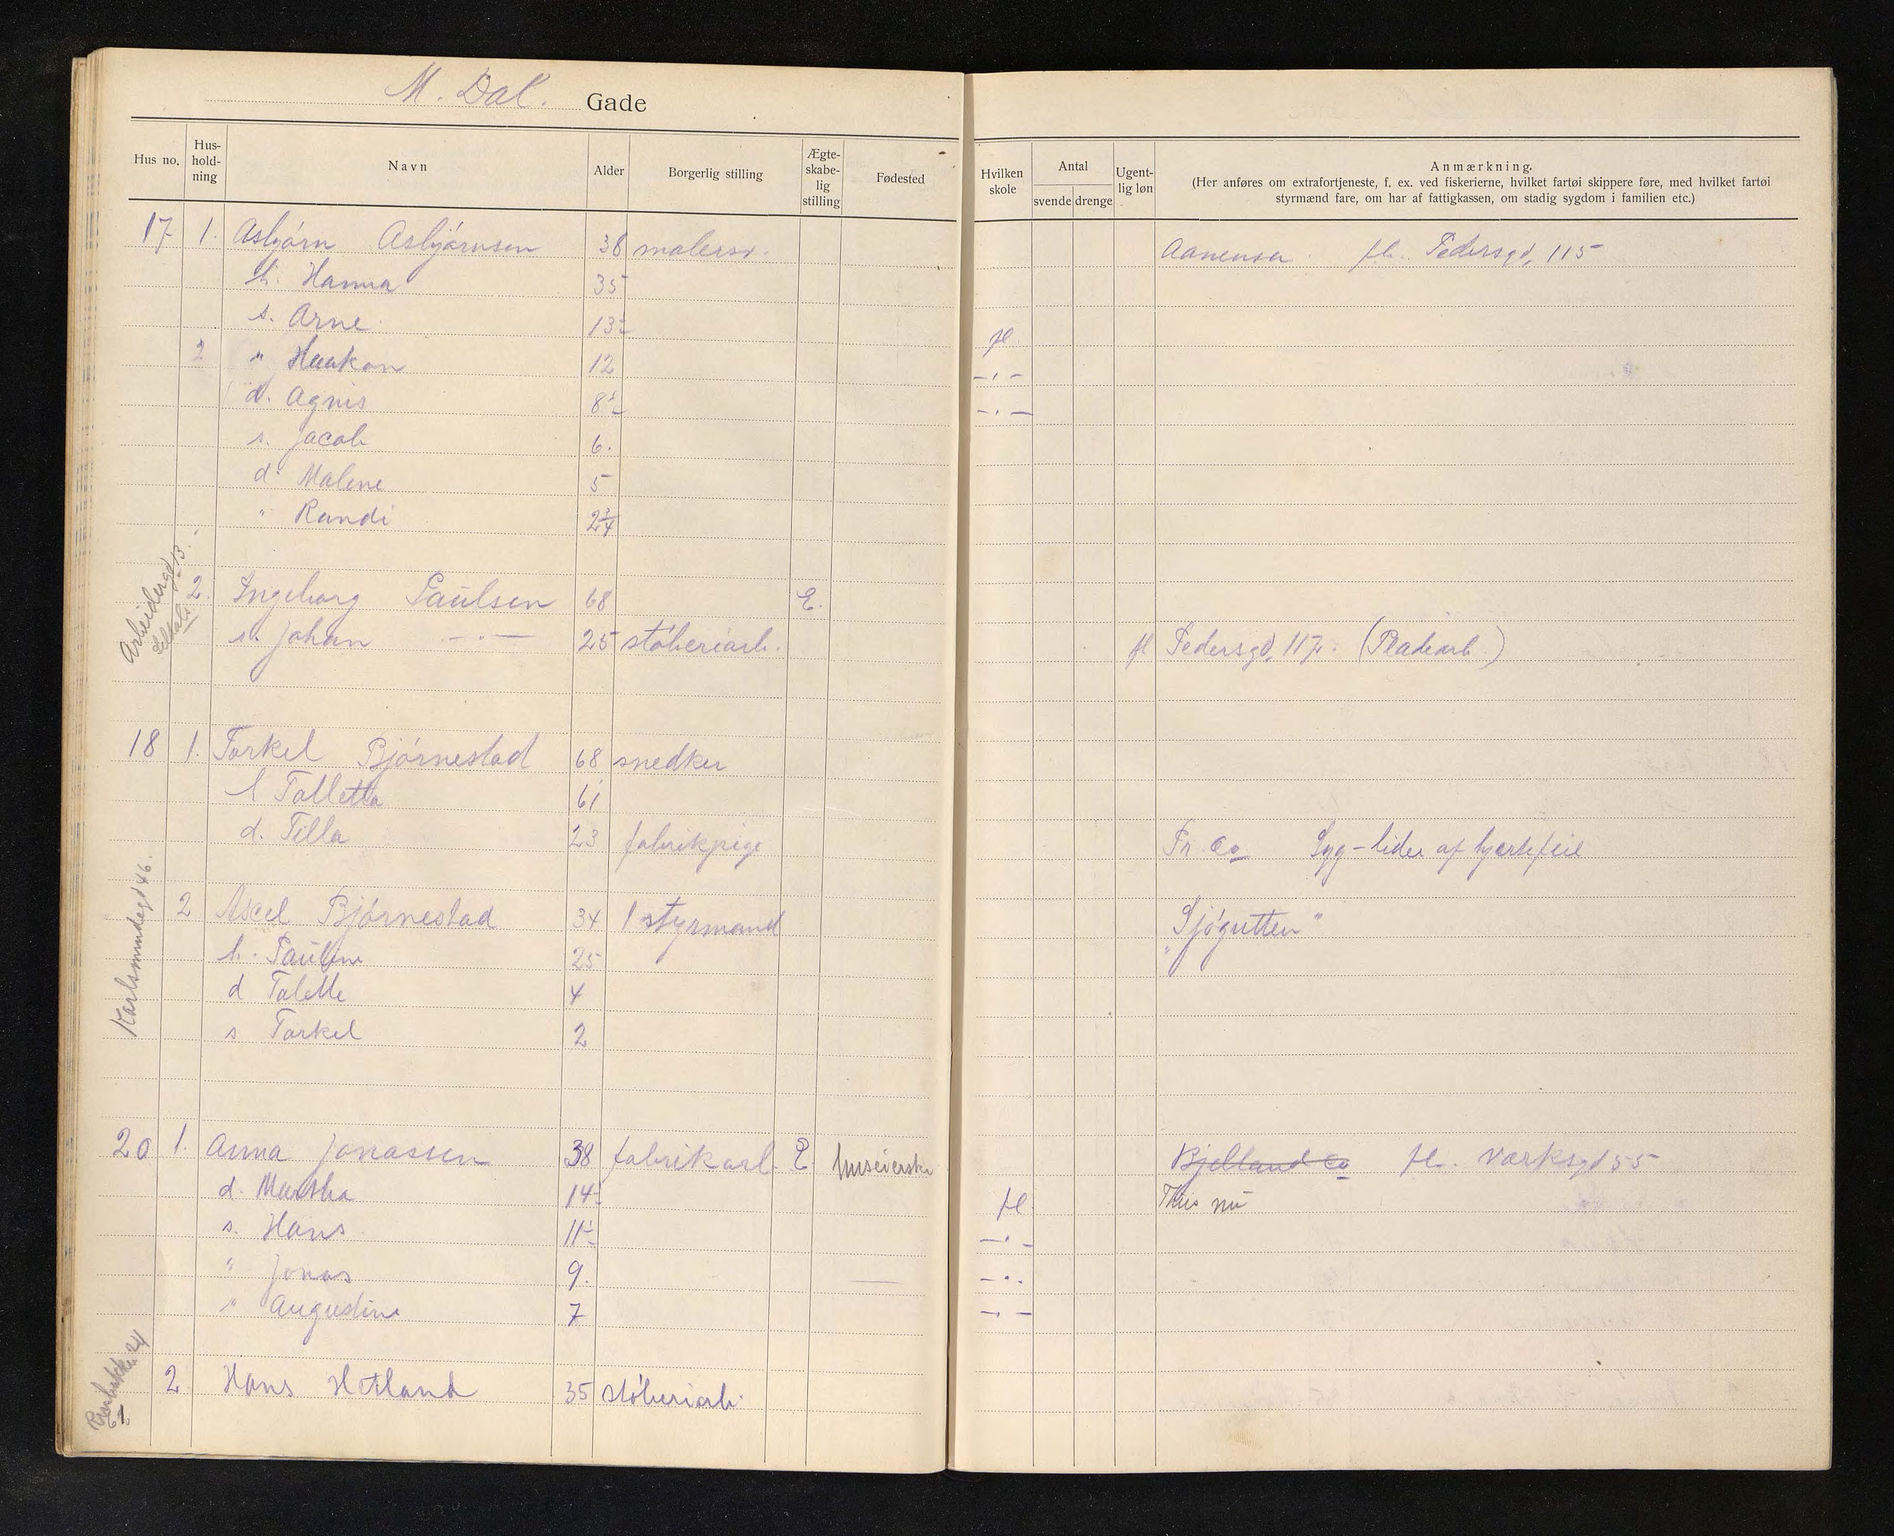 M. Dal. Gade
Hus no. Hus-hold-ning Navn Alder Borgerlig stilling Ægte-skabe-lig stilling Fødested Hvilken skole Antal svende drenge Ugent-lig løn Anmærkning.
(Her anføres om extrafortjeneste, f. ex. ved fiskerierne, hvilket fartøi skippere føre, med hvilket fartøi
styrmænd fare, om har af fattigkassen, om stadig sygdom i familien etc.)
17 1. Asbjørn Asbjørnsen 38 malersv. Aanensen fl. Pedersgd, 115
h. Hanna 35
s. Arne 13½ fl
2 " Haakon 12 - . -
d. Agnis 8½ - . -
s. Jacob 6.
d. Malene 5
" Randi 2¾
Arbeidergd 13.
2. Ingeborg Paulsen 68 E.
s. Johan - . - 25 støberiarb. fl Pedersgd, 117. (Pladearb.)
18 1. Torkel Bjørnestad 68 snedker
h Talletta 61
d. Tilla 23 fabrikpige Pr. Co Syg - lider af hjertefeil
Karlsmindegd 46.
2 Axel Bjørnestad 34 1 styrmand "Sjøgutten"
h. Pauline 25
d Talette 4
s Torkel 2
20 1. Anna Jonassen 38 fabrikarb. E. huseierske Bjelland Co fl. Værksgd 55
d. Martha 14½ fl Thiis nu
s. Hans 11½ - . -
" Jonas 9. - . -
" Augustin 7 - . -
2 Hans Hetland 35 støberiarb.